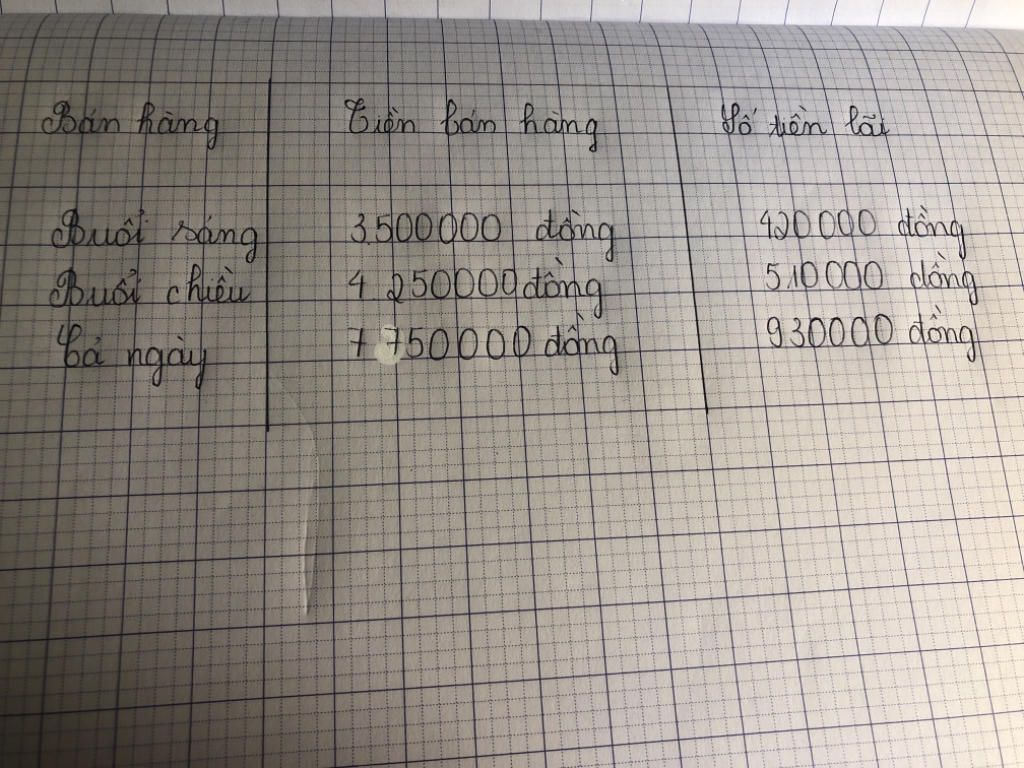 Bán hàng Tiền bán hàng Số tiền lãi
Buổi sáng 3.500000 đồng 420000 đồng
Buổi chiều 4 250000 đồng 5.10000 đồng
Cả ngày 7 750000 đồng 930000 đồng